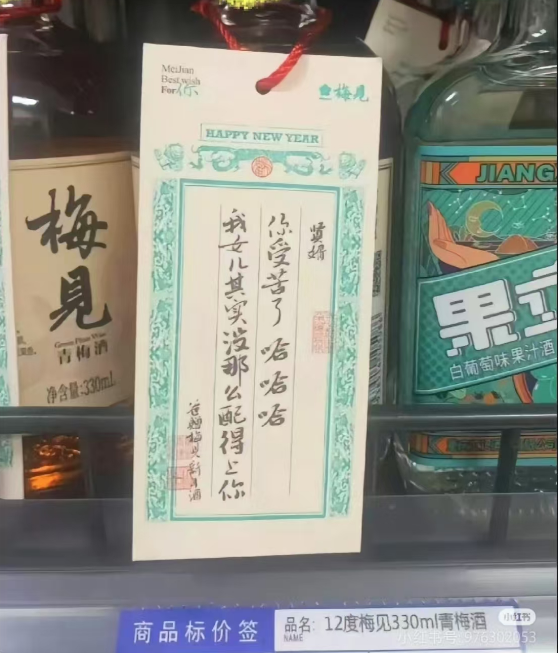 MeiJian
Best wish
For 你
梅見
HAPPY NEW YEAR
賢婿
你受苦了 哈哈哈
我女儿其实没那么配得上你
爸妈梅见新年酒
梅
見
Green Plum Wine
青梅酒
净含量:330mL
JIANG
果立
白葡萄味果汁酒
商品标价签
品名: 12度梅见330ml青梅酒
NAME
小红书
小红书号:976302053